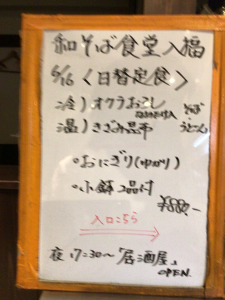 和そば食堂入福
5/16〈日替定食〉
冷)オクラおろし そば
温)きざみ昆布 うどん
○おにぎり(ゆかり)
○小鉢2品付
¥880-
入口こちら
夜、17:30〜「居酒屋」
OPEN